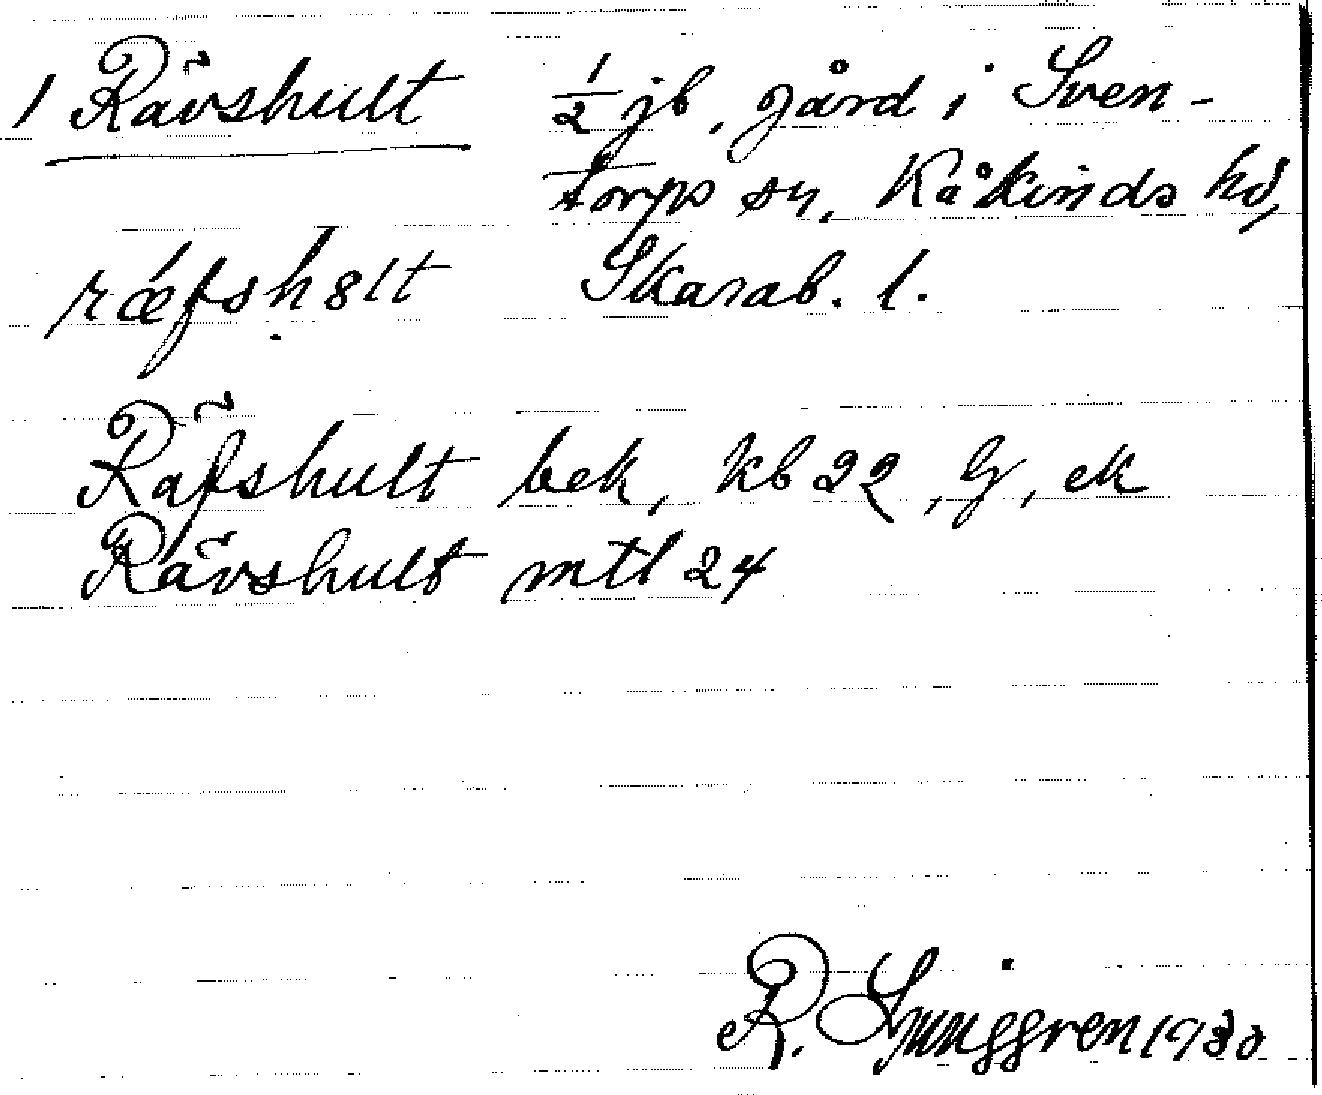 1 Rävshult ½ jb, gård i Sven-
torps sn, Kåkinds hd,
ræfsh8lt Skarab. l.
Räfshult bek, kb 22, G, ek
Rävshult mtl 24
R. Ljunggren 1930